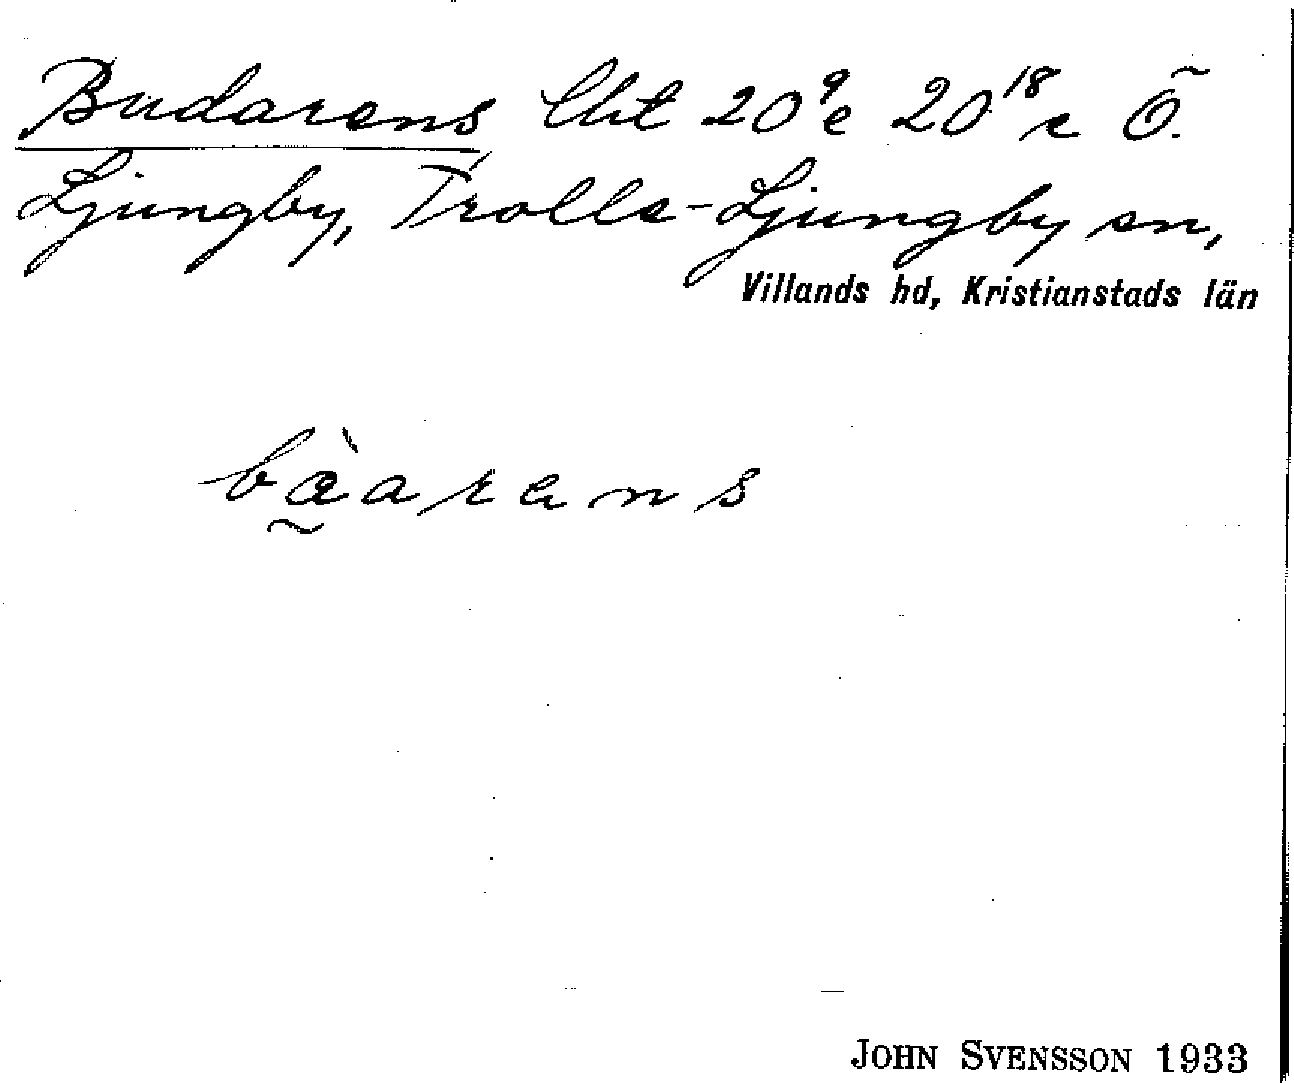 Budarens lht 20⁹e 20¹⁸e Ö.
Ljungby, Trolle-Ljungby sn,
Villands hd, Kristianstads län
bæ̰̀arens
JOHN SVENSSON 1933